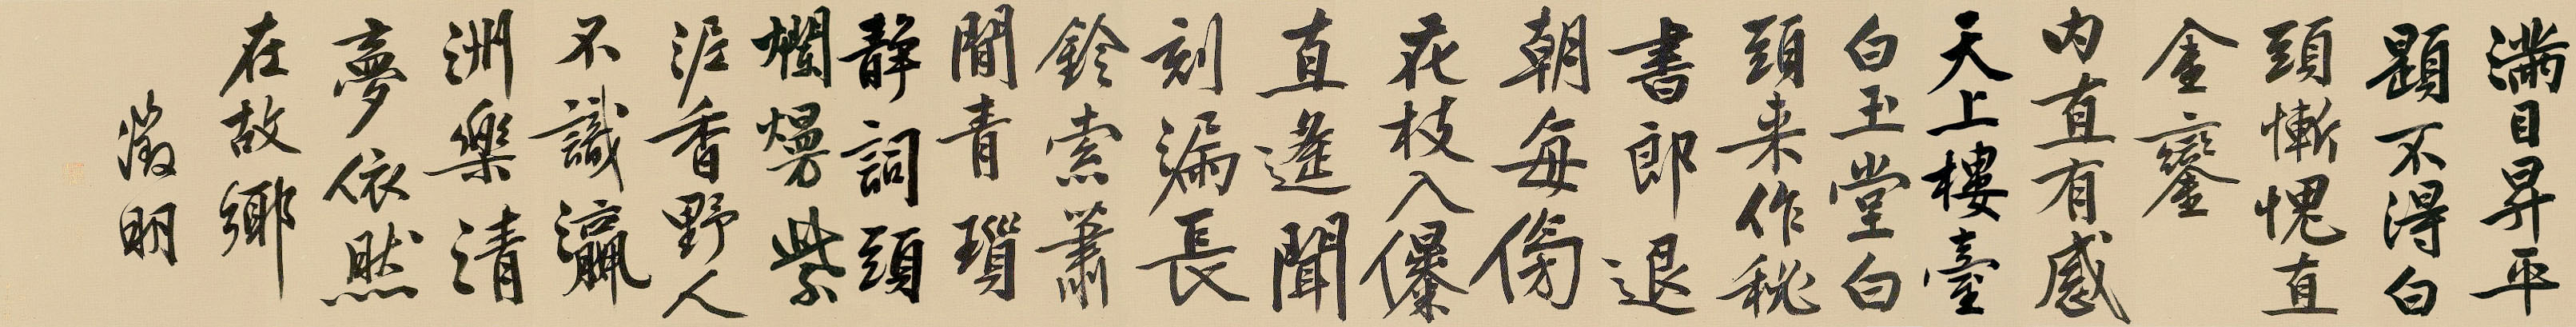 満目昇平
題不得白
頭慚愧直
金鑾
内直有感
天上樓臺
白玉堂白
頭来作秘
書郎退
朝每傍
花枝入儤
直遥聞
刻漏長
鈴索蕭
閒青瑣
靜詞頭
爛熳紫
泥香野人
不識瀛
洲樂清
夢依然
在故鄉
徵明